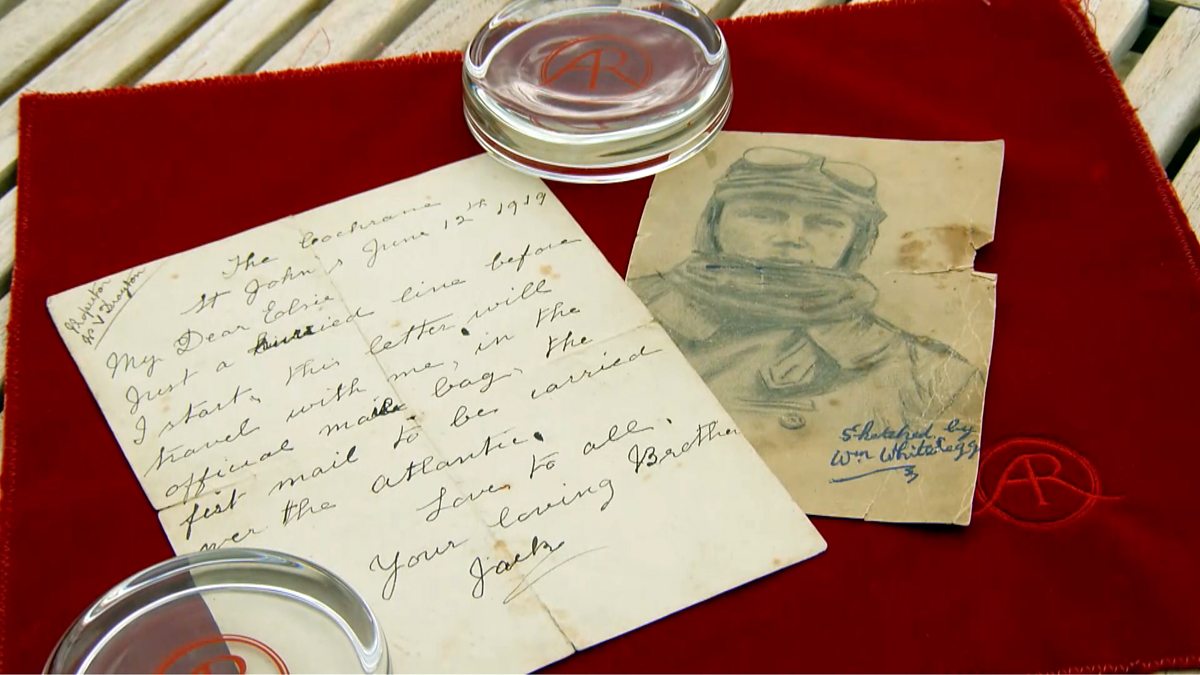 The Cochrane
St Johns June 12th 1919
My Dear Elsie
Just a hurried line before
I start, this letter will
travel with me, in the
official mail bag, the
first mail to be carried
over the atlantic.
Love to all.
Your loving Brother
Jack
Drayton
AR
Sketched by
Wm Whitelegg
AR
AR